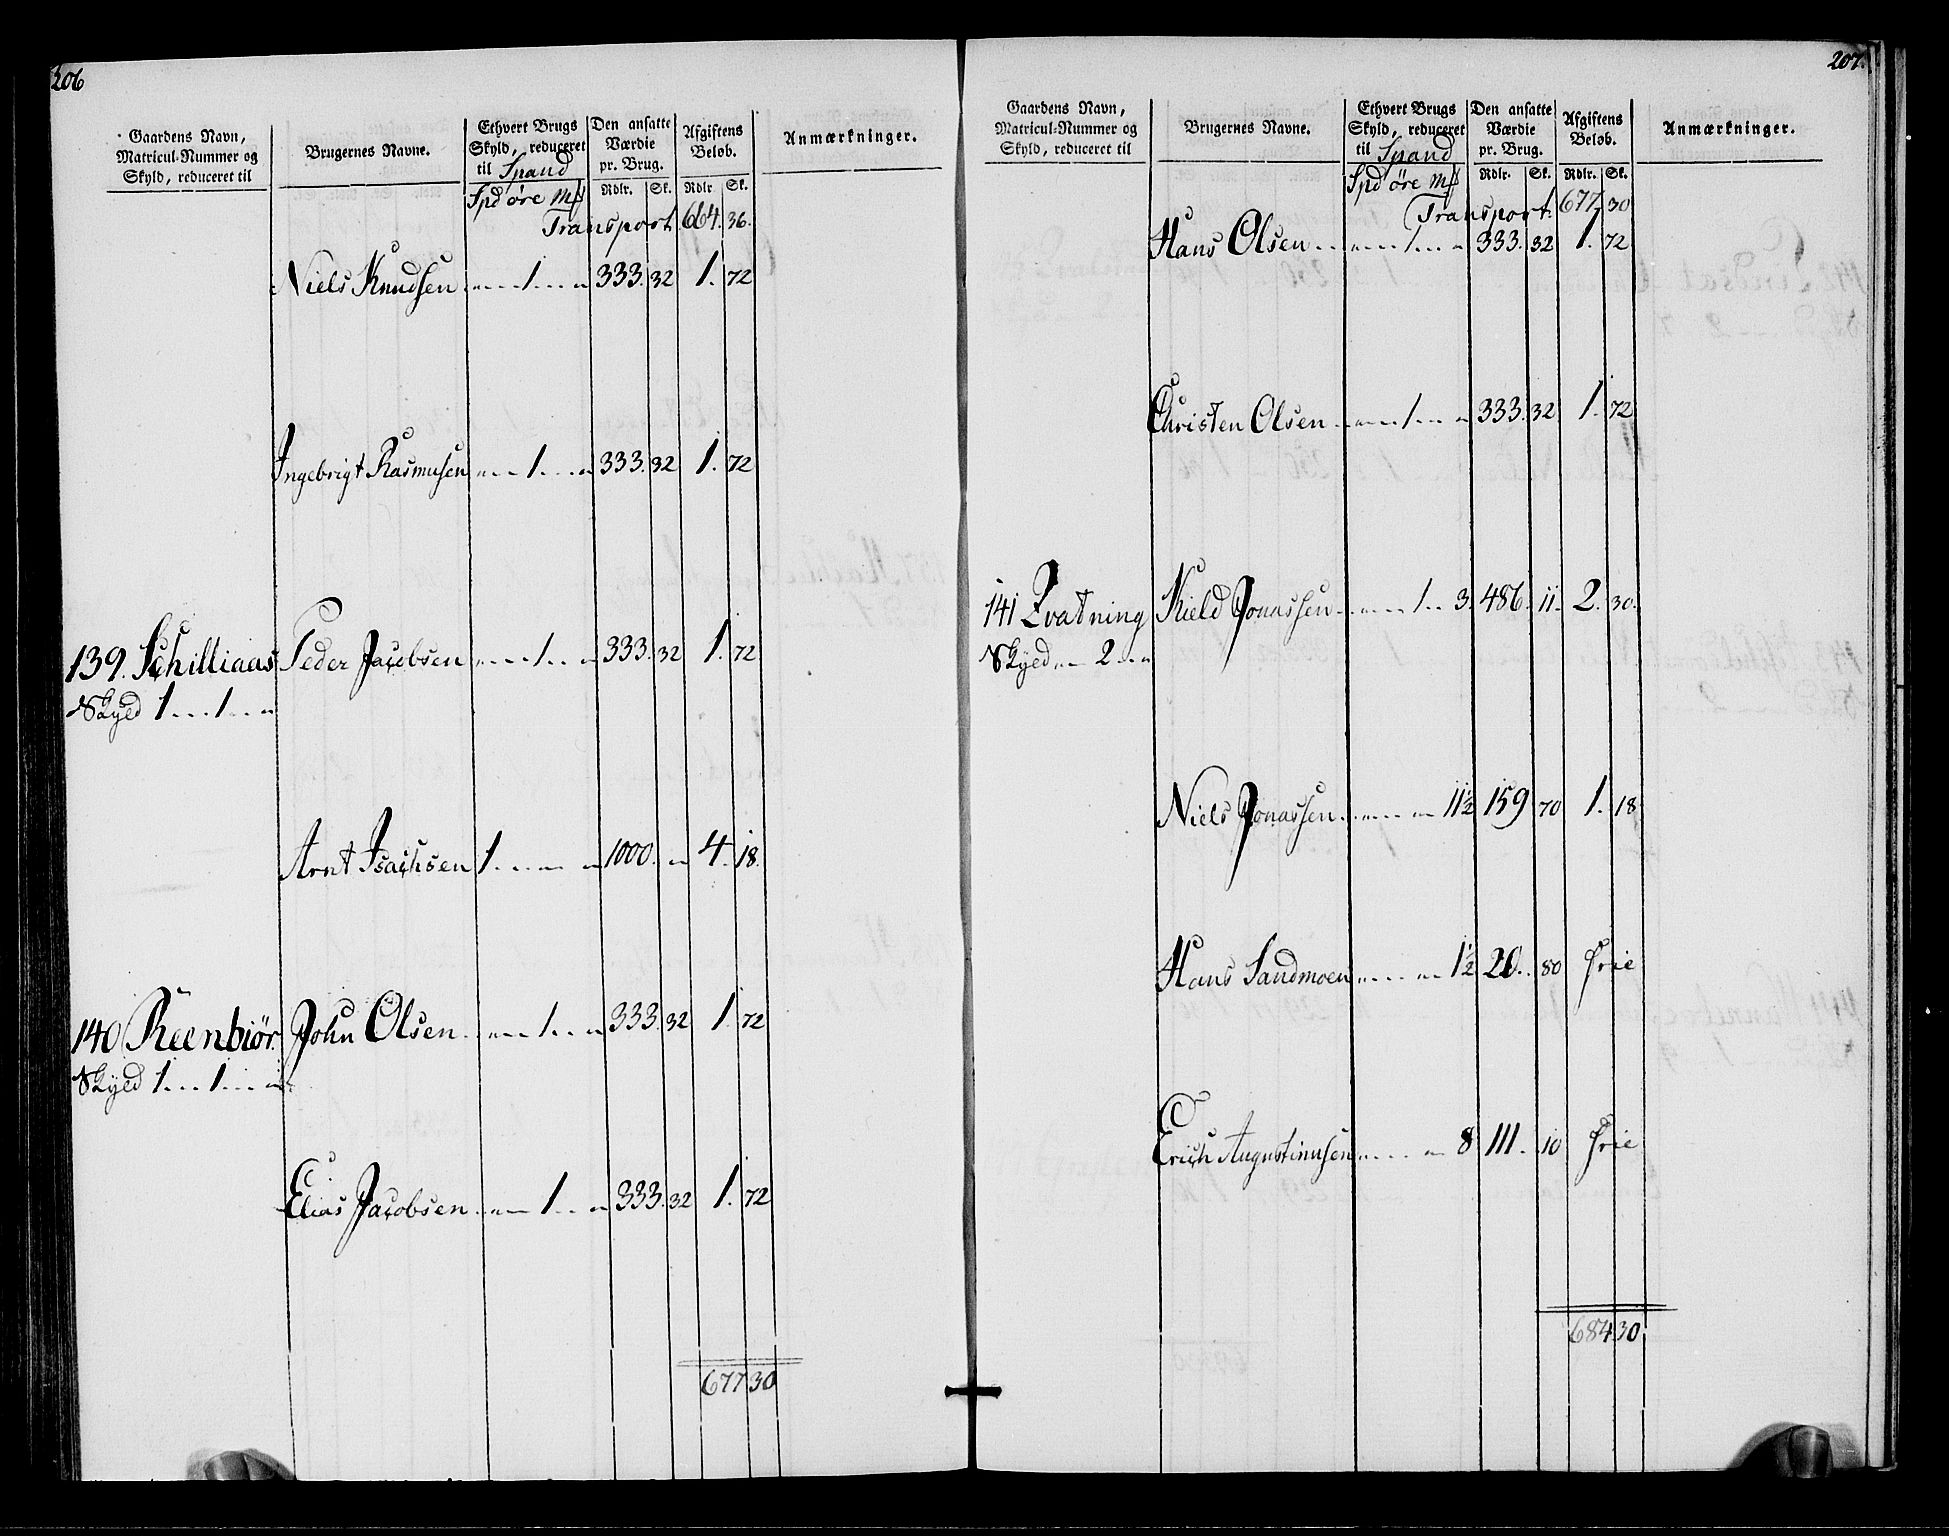 206
Gaardens Navn, Matricul-Nummer og Skyld, reduceret til
Brugernes Navne.
Ethvert Brugs Skyld, reduceret til Spand
Den ansatte Værdie pr. Brug.
Afgiftens Beløb.
Anmærkninger.
Spd øre Mk Rdlr. Sk. Rdlr Sk.
Transport 664. 36.
Niels Knudsen 1 333. 32 1. 72
Ingebrigt Rasmusen 1 333. 32 1. 72
139. Schilliaas Peder Jacobsen 1 333. 32 1. 72
Skyld 1 1
Arnt Isachsen 1 1000. 4. 18.
140 Reenbiør. John Olsen 1 333. 32 1. 72
Skyld 1 1
Elias Jacobsen 1 333. 32 1. 72
677 30
207.
Gaardens Navn, Matricul-Nummer og Skyld, reduceret til
Brugernes Navne.
Ethvert Brugs Skyld, reduceret til Spand
Den ansatte Værdie pr. Brug.
Afgiftens Beløb.
Anmærkninger.
Spd øre Mk Rdlr. Sk. Rdlr. Sk.
Transport. 677. 30
Hans Olsen 1 333. 32 1. 72
Christen Olsen 1 333. 32. 1. 72
141 Qvatning Kield Jonassen 1 3. 486. 11. 2. 30.
Skyld 2
Niels Jonassen 11½ 159 70 1. 18
Hans Sandmoen 1½ 20. 80 Frie
Erich Augustinusen 8 111. 10 Frie
684 30